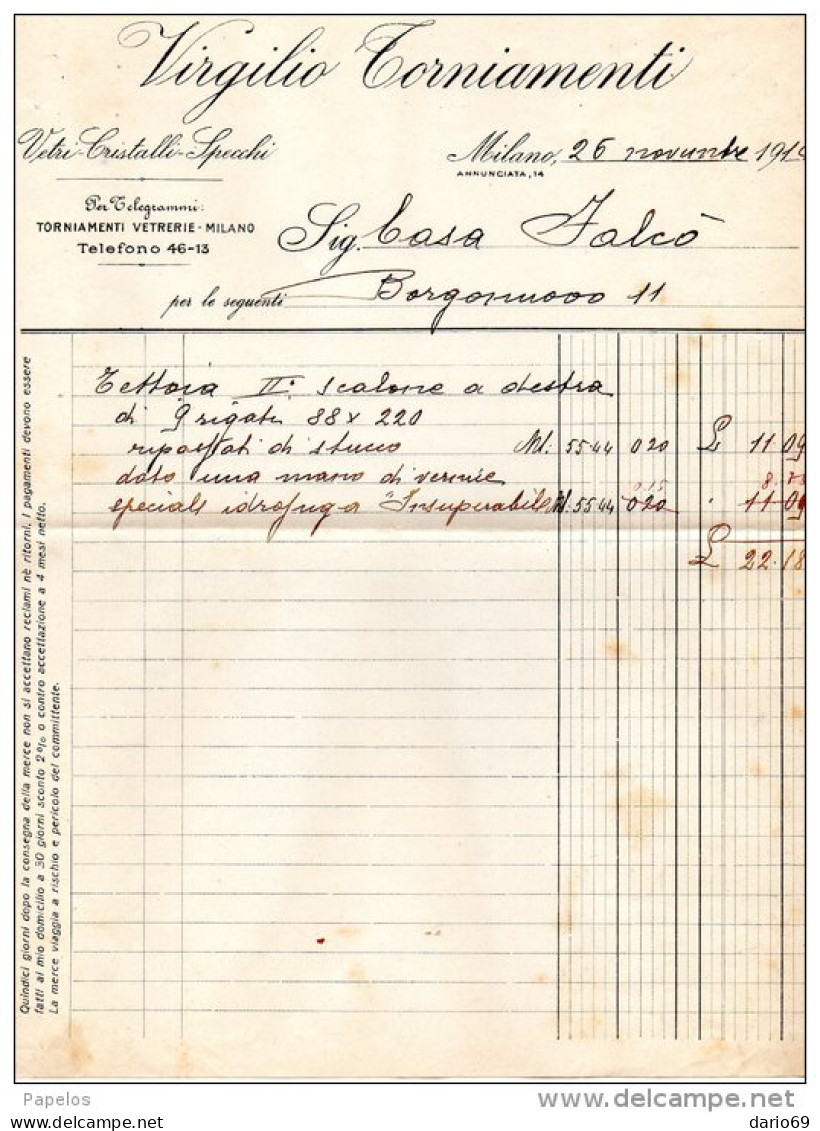 Virgilio Torniamenti
Vetri-Cristalli-Specchi
Milano, 26 novembre 191
ANNUNCIATA, 14
Per Telegrammi:
TORNIAMENTI VETRERIE - MILANO
Telefono 46-13
Sig. Casa Falcò
per le seguenti Borgonuovo 11
Tettoia II° scalone a destra
di 9 rigati 88 x 220
ripassati di stucco Ml: 55.44 020 £ 11 09
dato una mano di vernice
0,15 8.73
speciale idrofuga "Insuperabile" Ml: 55.44 020 " 11 09
£ 22.18
Quindici giorni dopo la consegna della merce non si accettano reclami nè ritorni. I pagamenti devono essere
fatti al mio domicilio a 30 giorni sconto 2% o contro accettazione a 4 mesi netto.
La merce viaggia a rischio e pericolo del committente.
Papelos
www.delcampe.net
dario69